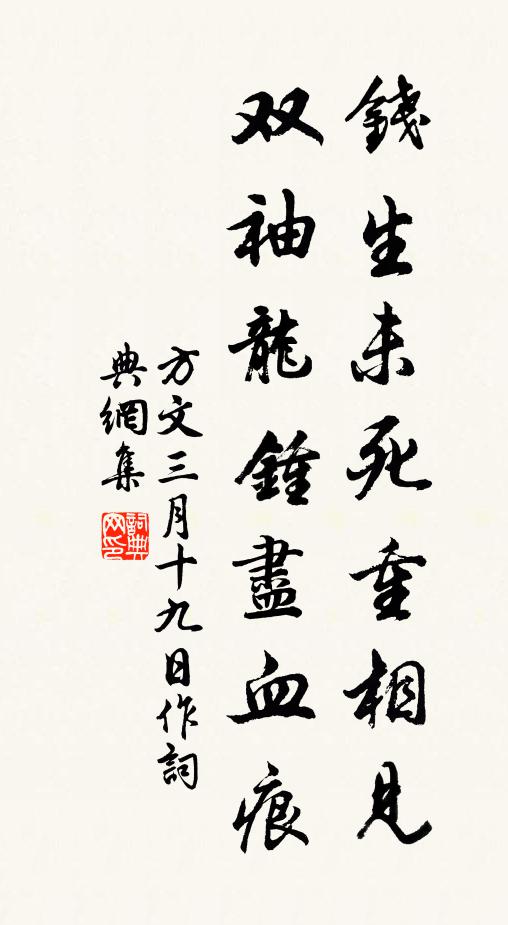 錢生未死重相見
双袖龍鍾盡血痕
方文三月十九日作詞
典網集
詞典网印